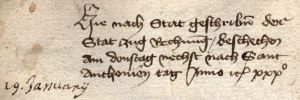 Hie nach Stat geschribn der
Stat Aug Rechnung / beschechen
am donstag nechst nach Sant
Anthonien tag Anno
19. January